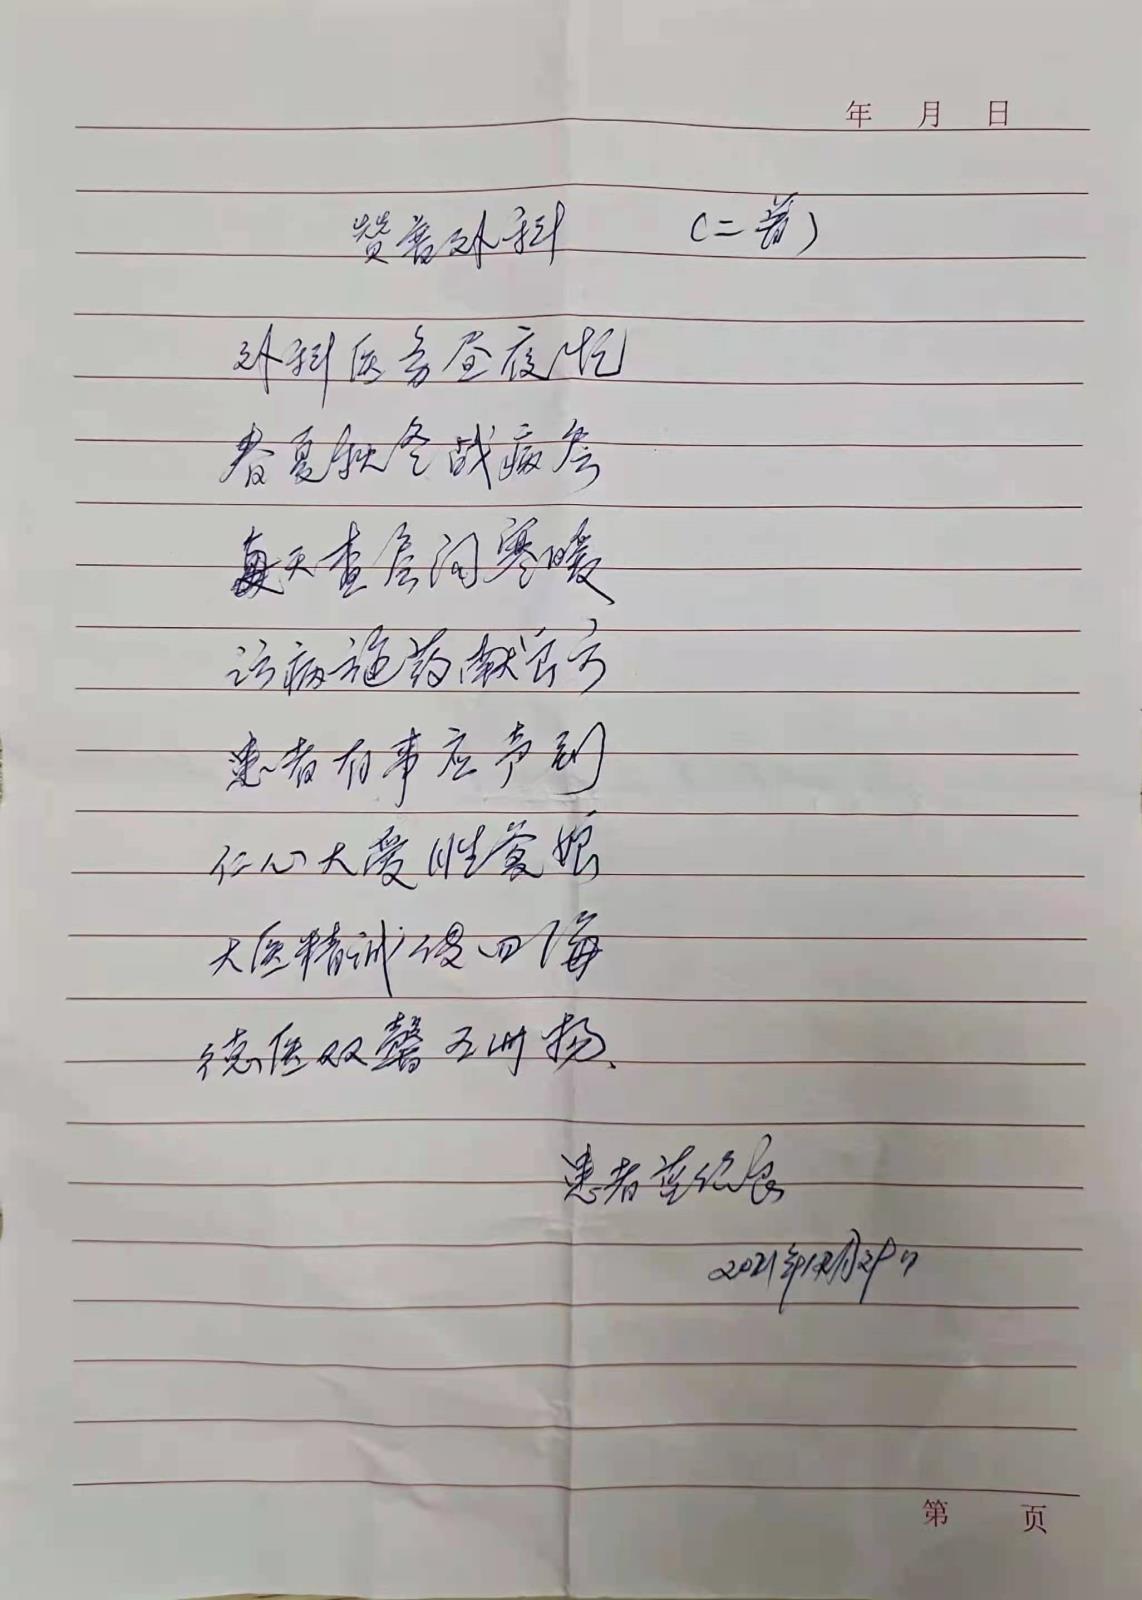 年 月 日
赞普外科 (二首)
外科医务昼夜忙
春夏秋冬战病房
每天查房问寒暖
诊病施药献良方
患者有事应声到
仁心大爱胜爹娘
大医精诚传四海
德医双馨五洲扬.
患者
2021年12月29日
第 页